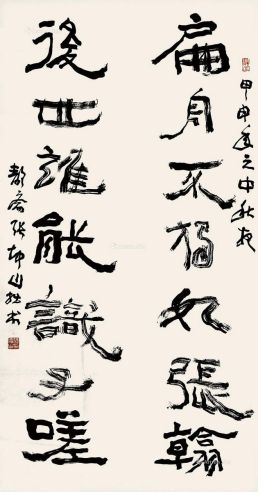 甲申年之中秋夜
扁舟不獨如張翰
後世誰能識子嗟
齋張坤山